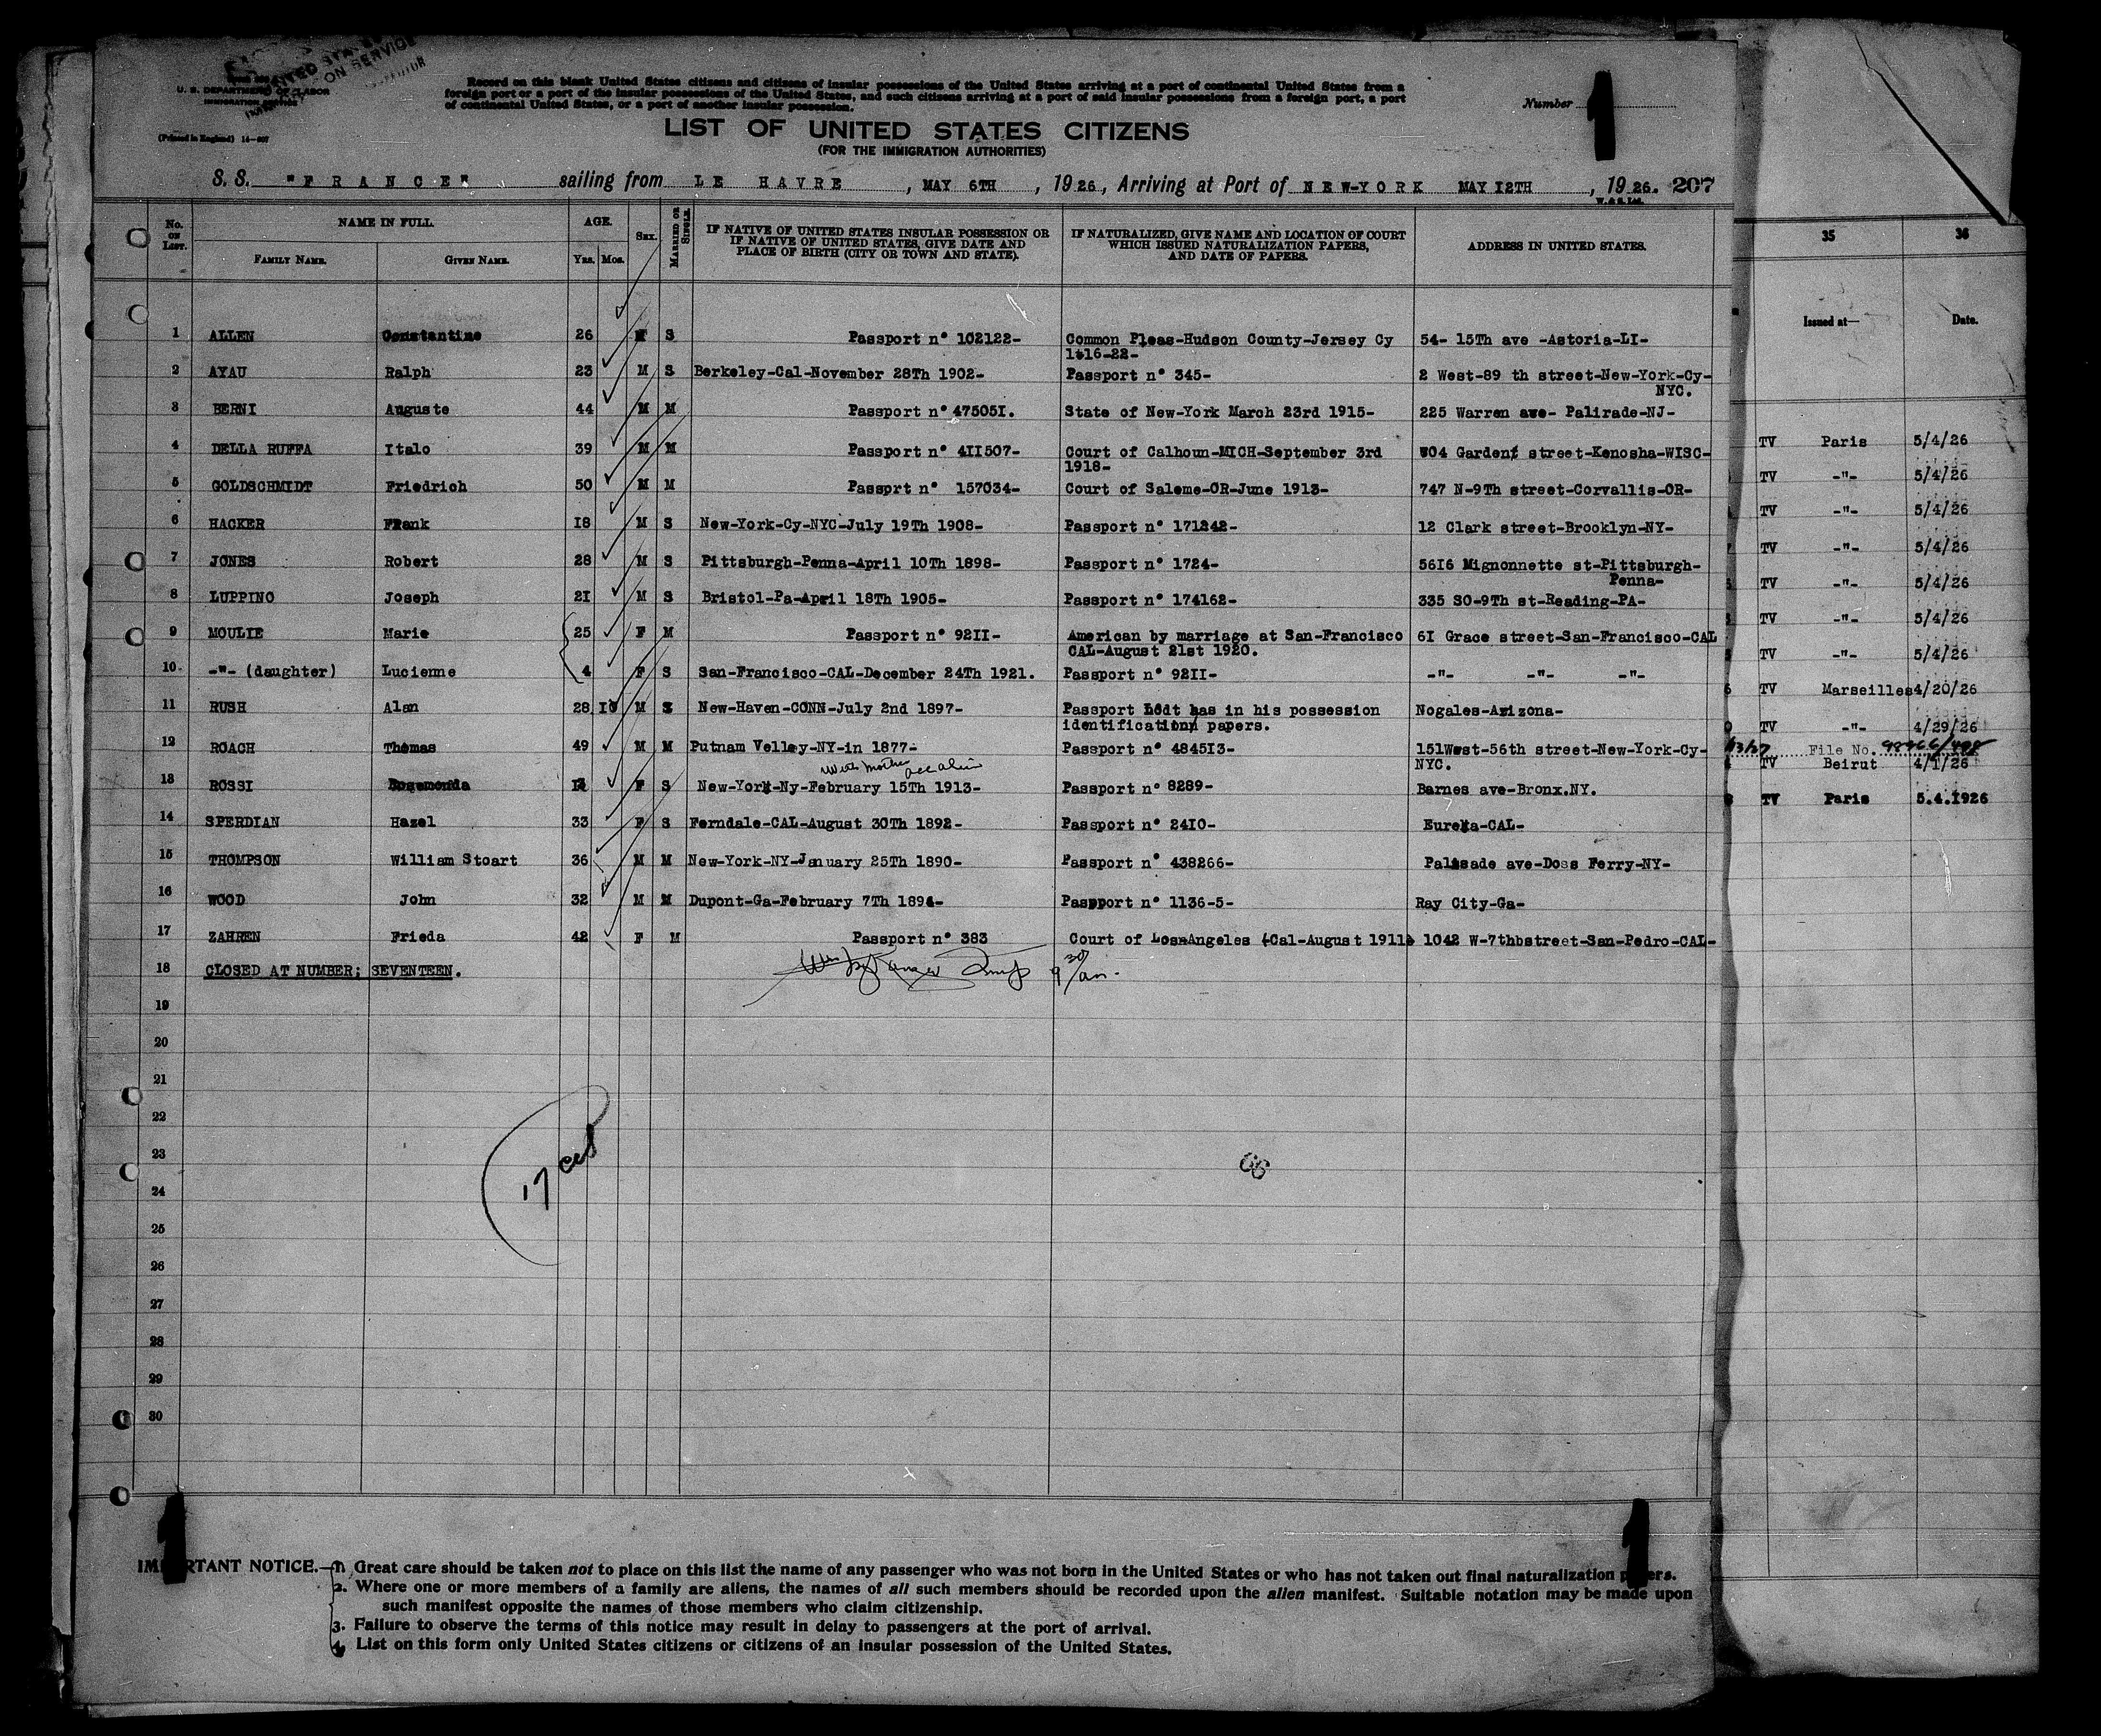 U. S. DEPARTMENT OF LABOR
IMMIGRATION SERVICE
(Printed in England) 14-607
Record on this blank United States citizens and citizens of insular possessions of the United States arriving at a port of continental United States from a
foreign port or a port of the insular possessions of the United States, and such citizens arriving at a port of said insular possessions from a foreign port, a port
of continental United States, or a port of another insular possession.
Number 1
LIST OF UNITED STATES CITIZENS
(FOR THE IMMIGRATION AUTHORITIES)
S. S. "FRANCE" sailing from LE HAVRE, MAY 6TH, 1926, Arriving at Port of NEW-YORK MAY 12TH, 1926. 207
No. ON LIST. NAME IN FULL. AGE. SEX. MARRIED OR SINGLE. IF NATIVE OF UNITED STATES INSULAR POSSESSION OR IF NATIVE OF UNITED STATES, GIVE DATE AND PLACE OF BIRTH (CITY OR TOWN AND STATE). IF NATURALIZED, GIVE NAME AND LOCATION OF COURT WHICH ISSUED NATURALIZATION PAPERS, AND DATE OF PAPERS. ADDRESS IN UNITED STATES. 35 36
FAMILY NAME. GIVEN NAME. Yrs. Mos.
Issued at— Date.
1 ALLEN Constantine 26 S Passport n° 102122- Common Pleas-Hudson County-Jersey Cy 54- 15Th ave -Astoria-LI-
1-16-22-
2 AYAU Ralph 23 M S Berkeley-Cal-November 28Th 1902- Passport n° 345- 2 West-89 th street-New-York-Cy-
NYC.
3 BERNI Auguste 44 M M Passport n° 47505I. State of New-York March 23rd 1915- 225 Warren ave- Palirade-NJ-
4 DELLA RUFFA Italo 39 M M Passport n° 4II507- Court of Calhoun-MICH-September 3rd 04 Garden street-Kenosha-WISC- TV Paris 5/4/26
1918-
5 GOLDSCHMIDT Friedrich 50 M M Passprt n° 157034- Court of Saleme-OR-June 1913- 747 N-9Th street-Corvallis-OR- TV -"- 5/4/26
6 HACKER Frank I8 M S New-York-Cy-NYC-July 19Th 1908- Passport n° 171242- 12 Clark street-Brooklyn-NY- TV -"- 5/4/26
7 JONES Robert 28 M S Pittsburgh-Penna-April 10Th 1898- Passport n° 1724- 56I6 Mignonnette st-Pittsburgh- TV -"- 5/4/26
Penna- TV -"- 5/4/26
8 LUPPINO Joseph 2I M S Bristol-Pa-April 18Th 1905- Passport n° 174162- 335 SO-9Th st-Reading-PA-
9 MOULIE Marie 25 F M Passport n° 92II- American by marriage at San-Francisco 6I Grace street-San-Francisco-CAL TV -"- 5/4/26
CAL-August 21st 1920. TV -"- 5/4/26
10 -"- (daughter) Lucienne 4 F S San-Francisco-CAL-December 24Th 1921. Passport n° 92II- -"- -"- -"- TV Marseilles 4/20/26
11 RUSH Alan 28 I0 M S New-Haven-CONN-July 2nd 1897- Passport has in his possession Nogales-Arizona-
identification papers. TV -"- 4/29/26
12 ROACH Thomas 49 M M Putnam Velley-NY-in 1877- Passport n° 4845I3- 151West-56th street-New-York-Cy- File No.
NYC. TV Beirut 4/1/26
with mother
13 ROSSI F S New-York-Ny-February 15Th 1913- Passport n° 8289- Barnes ave-Bronx.NY. TV Paris 5.4.1926
14 SPERDIAN Hazel 33 F S Ferndale-CAL-August 30Th 1892- Passport n° 24I0- Eureka-CAL-
15 THOMPSON William Stoart 36 M M New-York-NY-January 25Th 1890- Passport n° 438266- Palisade ave-Doss Ferry-NY-
16 WOOD John 32 M M Dupont-Ga-February 7Th 1894- Passport n° 1136-5- Ray City-Ga-
17 ZAHREN Frieda 42 F M Passport n° 383 Court of Los-Angeles (Cal-August 1911) 1042 W-7thbstreet-San-Pedro-CAL-
18 CLOSED AT NUMBER; SEVENTEEN. 9 30/am.
19
20
21
22
23
24
25
26
27
28
29
30
17
66
1 1
IMPORTANT NOTICE.—1. Great care should be taken not to place on this list the name of any passenger who was not born in the United States or who has not taken out final naturalization papers.
2. Where one or more members of a family are aliens, the names of all such members should be recorded upon the alien manifest. Suitable notation may be made upon
such manifest opposite the names of those members who claim citizenship.
3. Failure to observe the terms of this notice may result in delay to passengers at the port of arrival.
4. List on this form only United States citizens or citizens of an insular possession of the United States.